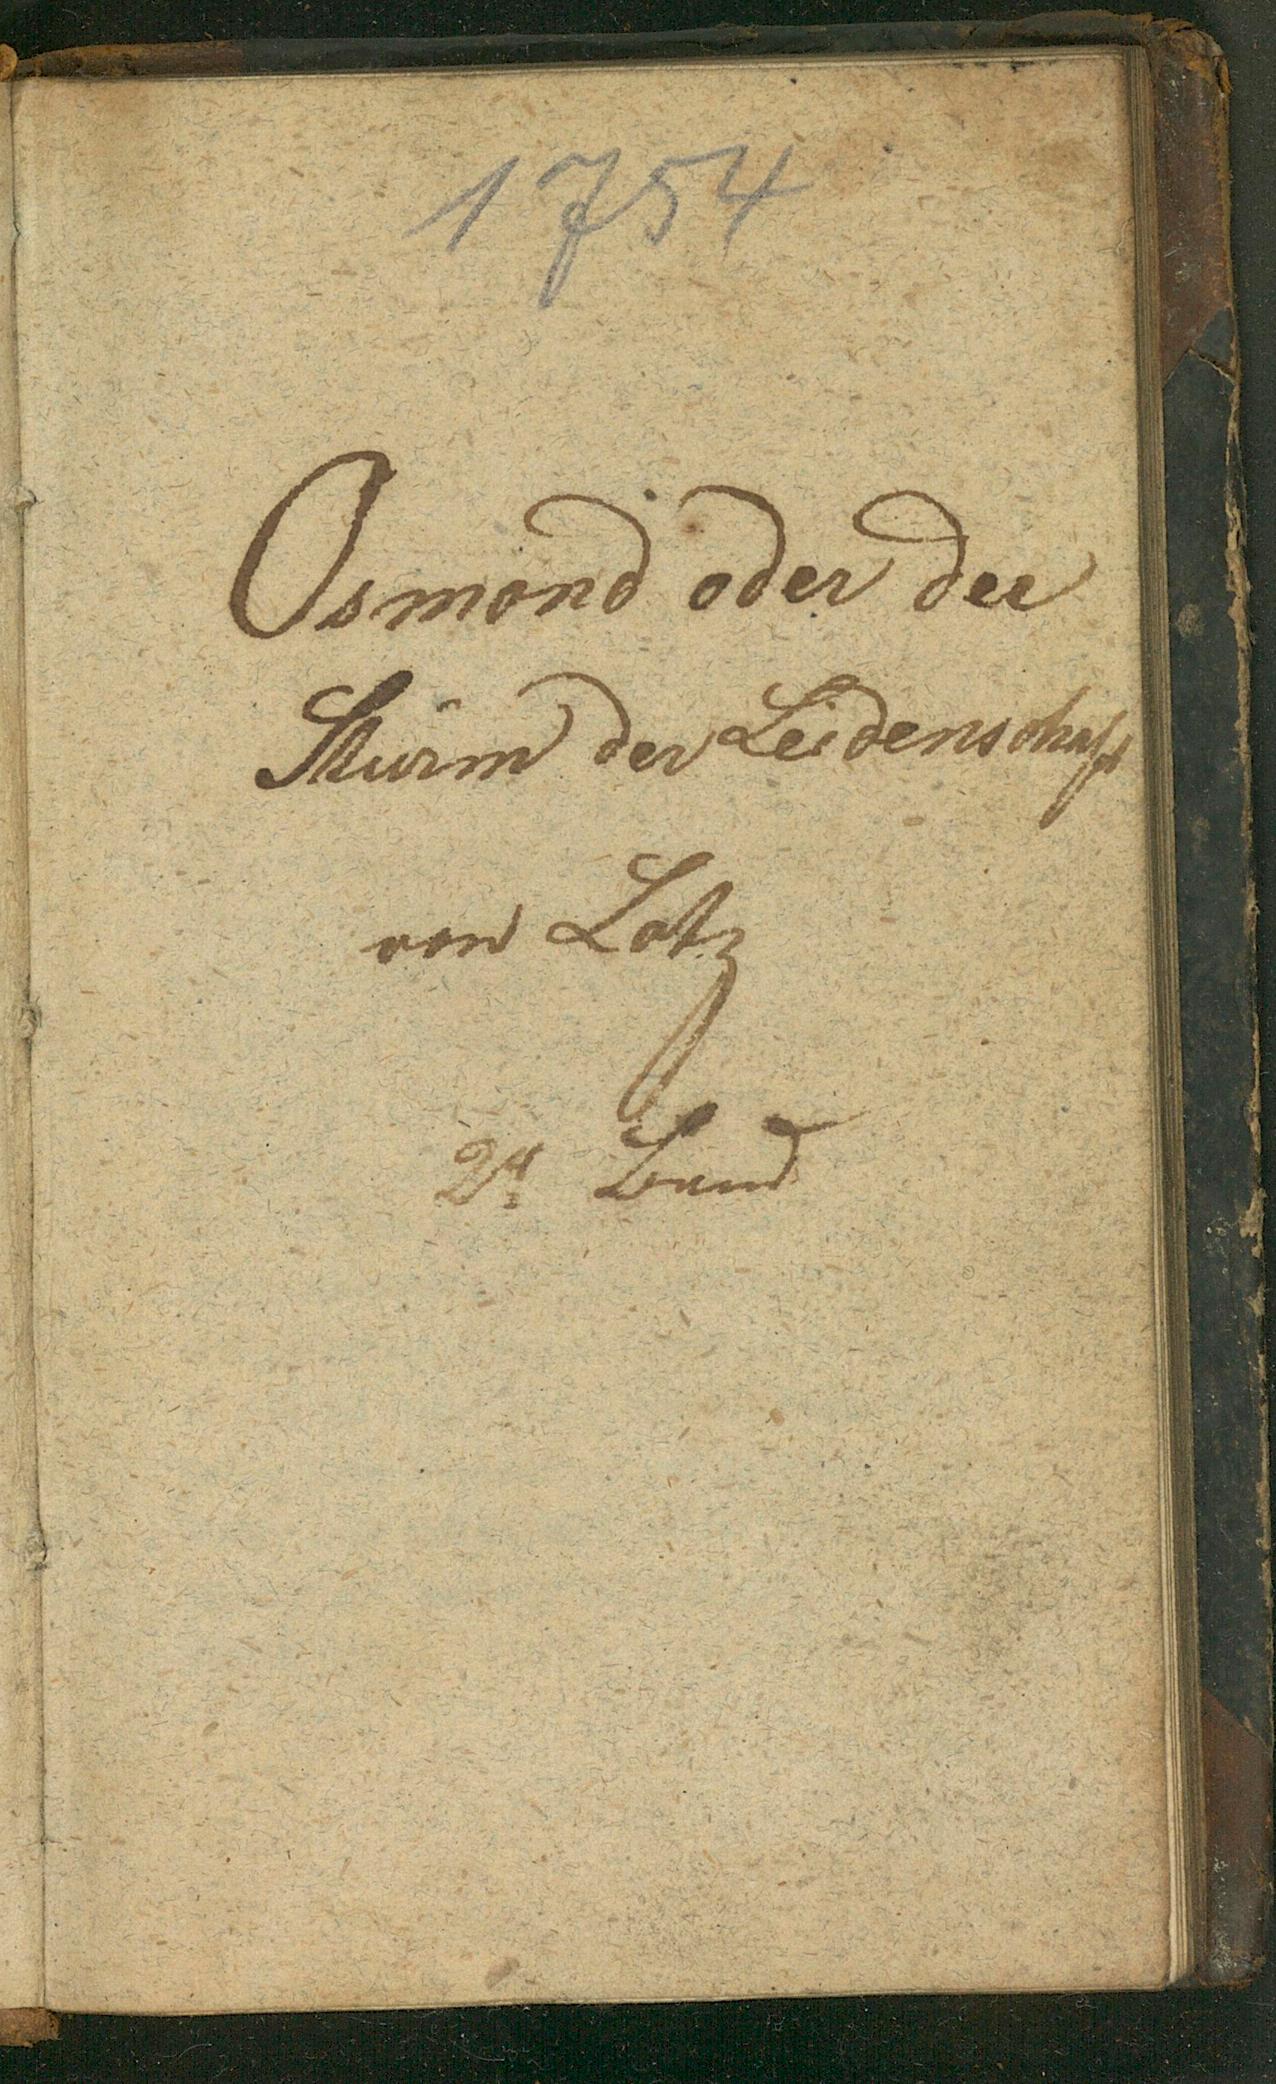 1754
Osmond oder der
Sturm der Leidenschaft
von Lotz
2r Band